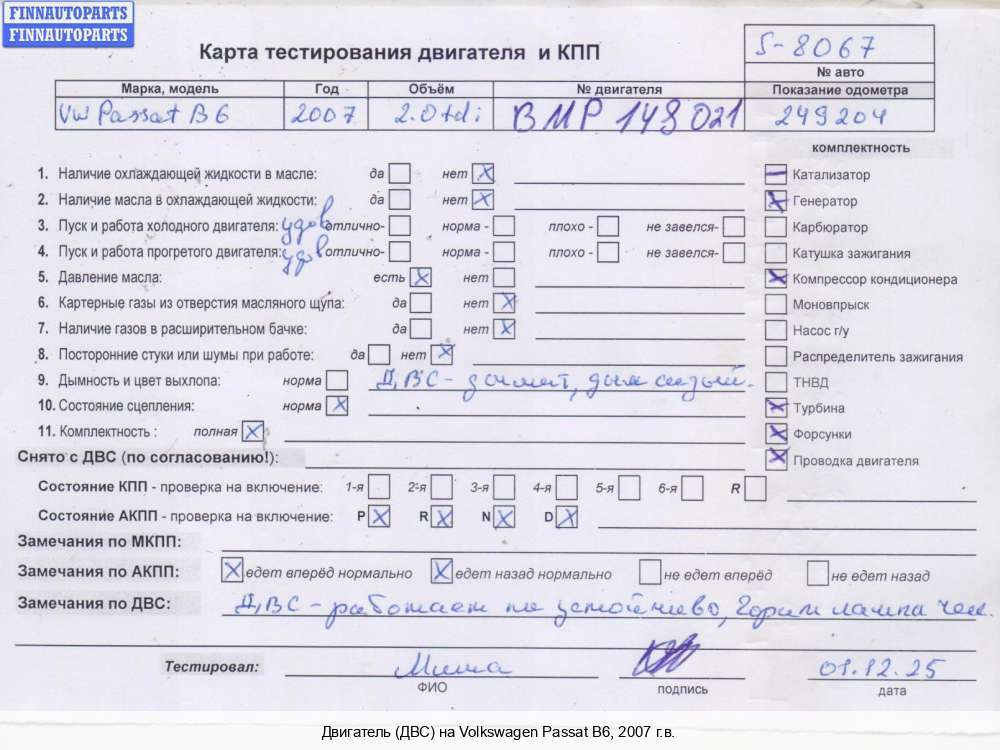 FINNAUTOPARTS
FINNAUTOPARTS
Карта тестирования двигателя и КПП
S-8067
№ авто
Марка, модель Год Объём № двигателя Показание одометра
VW Passat B6 2007 2.0tdi BMP 148021 249204
комплектность
1. Наличие охлаждающей жидкости в масле: да нет X
Катализатор
2. Наличие масла в охлаждающей жидкости: да нет X
Генератор
3. Пуск и работа холодного двигателя: удов отлично- норма - плохо - не завелся-
Карбюратор
4. Пуск и работа прогретого двигателя: удов отлично- норма - плохо - не завелся-
Катушка зажигания
5. Давление масла: есть X нет
Компрессор кондиционера
6. Картерные газы из отверстия масляного щупа: да нет X
Моновпрыск
7. Наличие газов в расширительном бачке: да нет X
Насос г/у
8. Посторонние стуки или шумы при работе: да нет X
Распределитель зажигания
9. Дымность и цвет выхлопа: норма ДВС - дымит, дым сизый.
ТНВД
10. Состояние сцепления: норма X
Турбина
11. Комплектность : полная X
Форсунки
Снято с ДВС (по согласованию!):
Проводка двигателя
Состояние КПП - проверка на включение: 1-я 2-я 3-я 4-я 5-я 6-я R
Состояние АКПП - проверка на включение: P X R X N X D X
Замечания по МКПП:
Замечания по АКПП: X едет вперёд нормально X едет назад нормально не едет вперёд не едет назад
Замечания по ДВС: ДВС - работает не устойчиво, Горит лампа чек.
Тестировал: Миша 01.12.25
ФИО подпись дата
Двигатель (ДВС) на Volkswagen Passat B6, 2007 г.в.